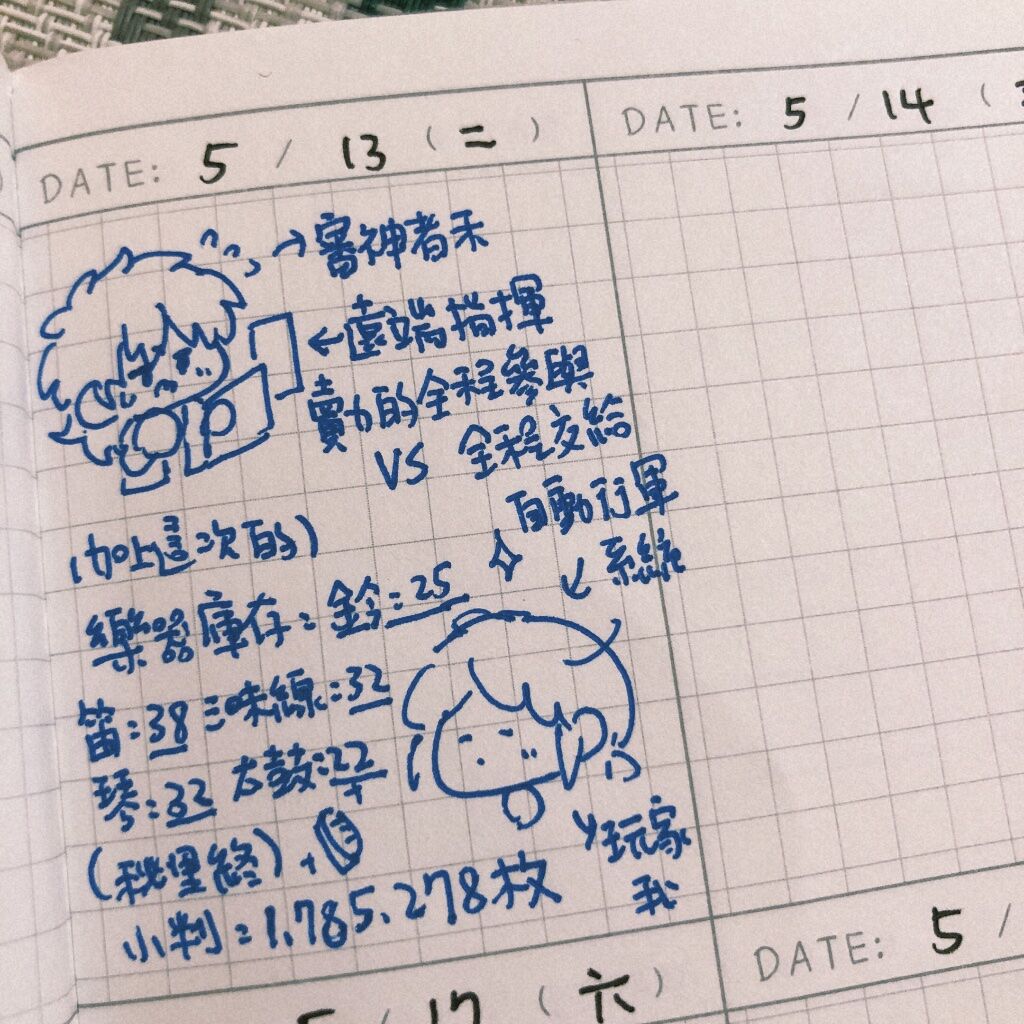 DATE: 5 / 13 (二)
DATE: 5 / 14 (
→審神者禾
←遠端指揮
賣力的全程參與
VS 全程交給
自動行軍
系統
(加上這次的)
樂器庫存: 鈴:25
笛:38 三味線:32
琴:32 太鼓:22
(秘里終)
小判:1.785.278枚
玩家
我
DATE: 5 /
5 / 17 (六)